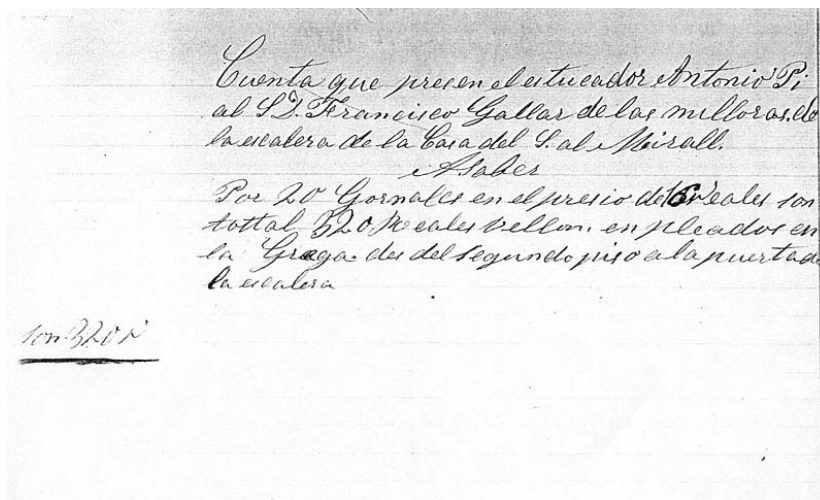 Cuenta que presen el estucador Antonio Pi
al S.D. Francisco Gallar de las milloras de
la escalera de la Casa del S. al Mirall.
A saber
Por 20 Gornales en el presio de 16 reales son
tottal 320 Reales vellon. en pleados en
la Grega des del segundo piso a la puerta de
la escalera
son 320 r